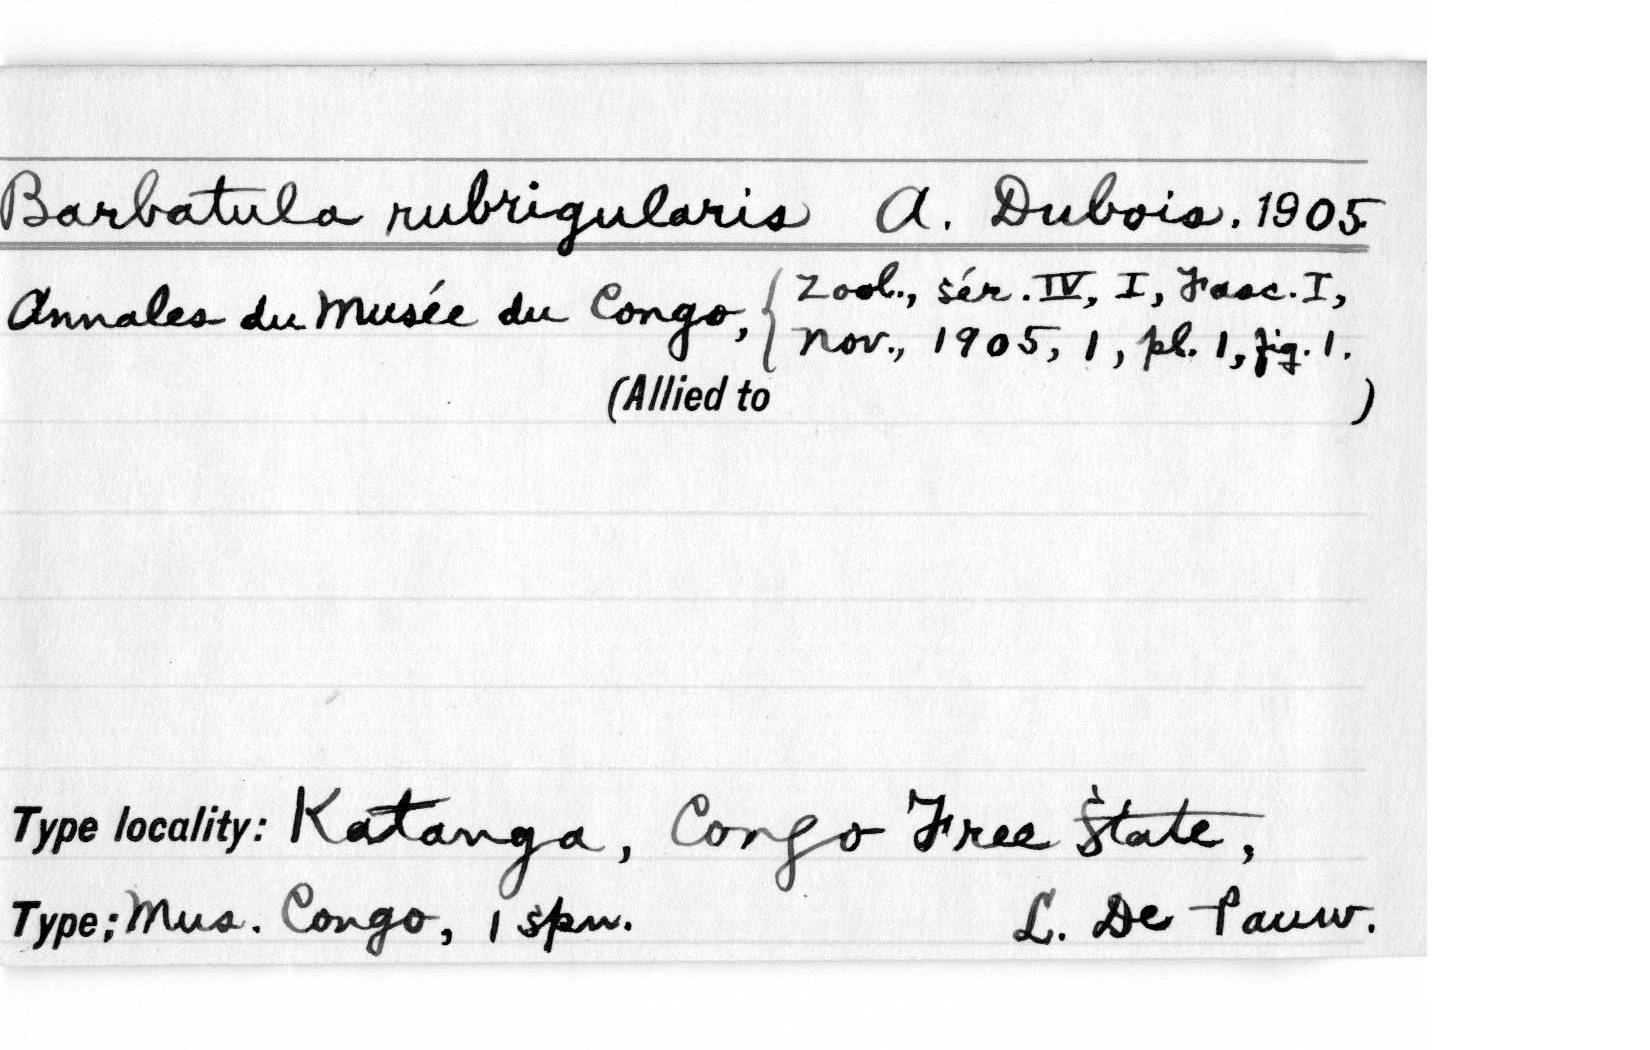 Barbatula rubrigularis A. Dubois. 1905.
Annales du Musée du Congo, { Zool., sér. IV, I, Fasc. I,
Nov., 1905, 1, pl. 1, fig. 1.
(Allied to )
Type locality: Katanga, Congo Free State,
Type; Mus. Congo, 1 spn. L. De Pauw.